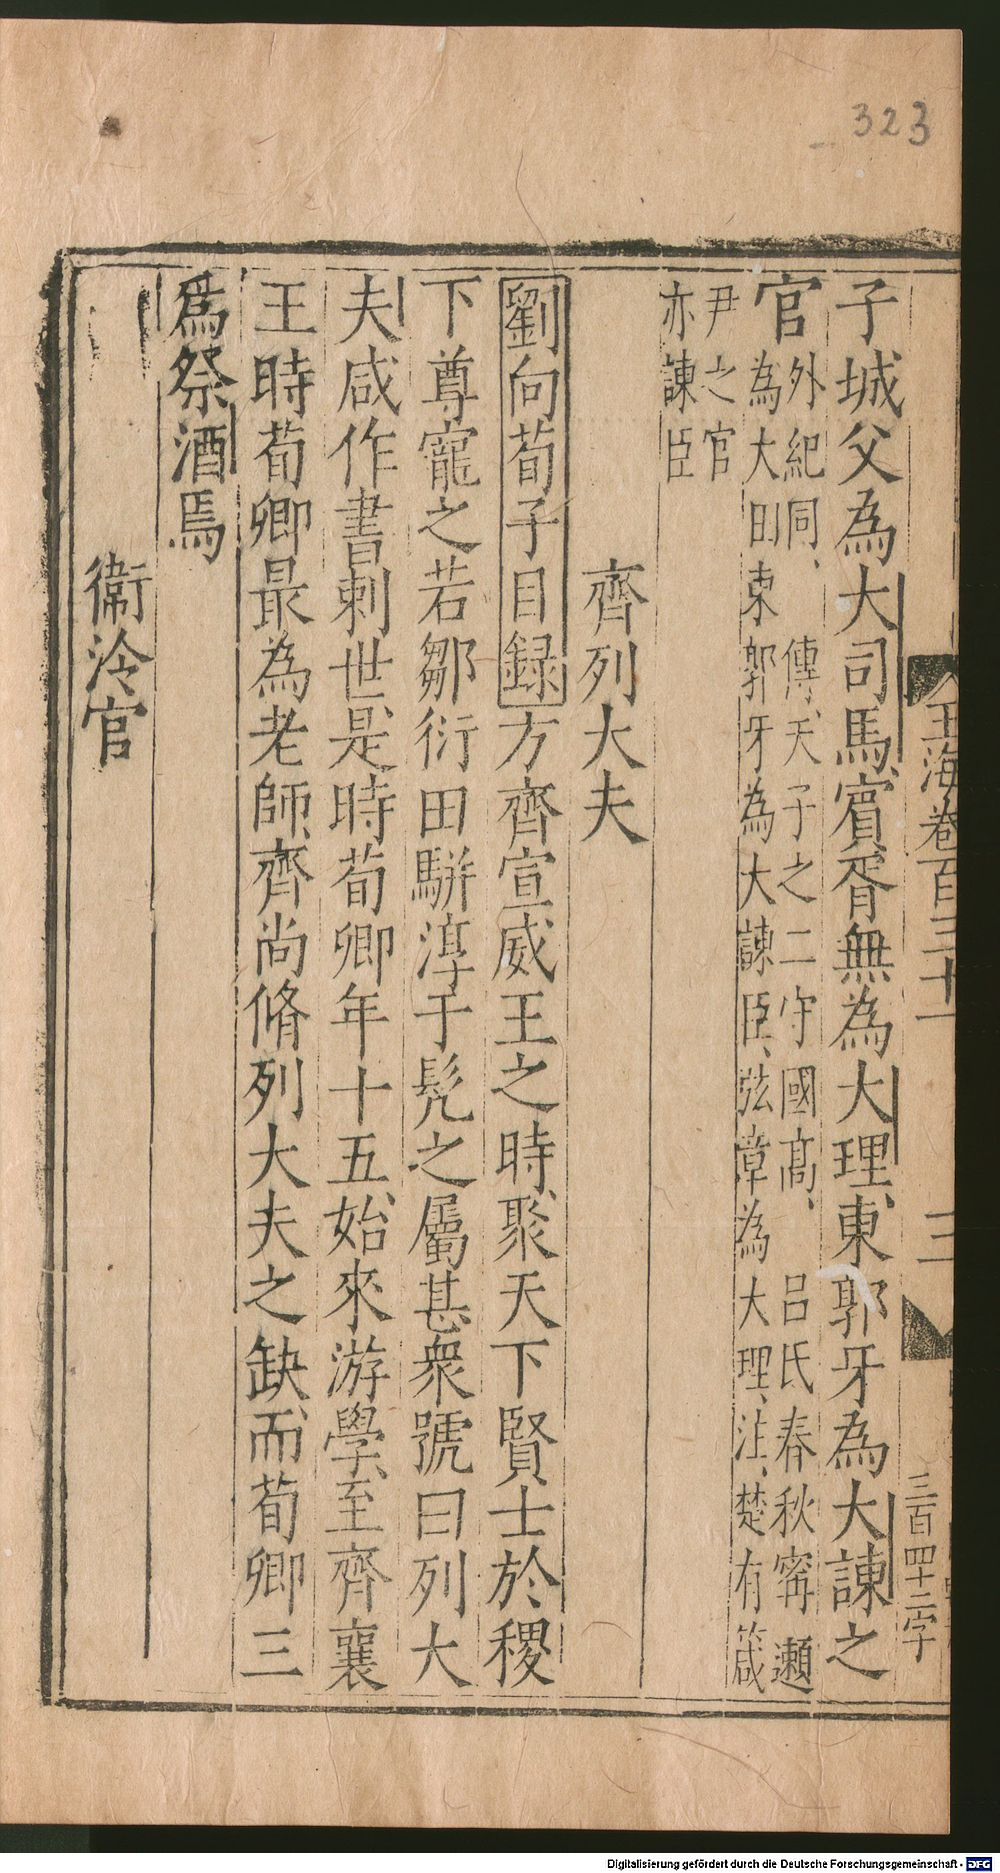 323
玉海卷百三十一
三
三百四十三字
子城父為大司馬賔胥無為大理東郭牙為大諫之
官
外紀同、傳、天子之二守國髙、呂氏春秋寗遬
為大田東郭牙為大諫臣、弦章為大理、注、楚有箴
尹之官
亦諫臣
齊列大夫
劉向荀子目録方齊宣威王之時聚天下賢士於稷
下尊寵之若鄒衍田駢淳于髡之屬甚衆號曰列大
夫咸作書刺世是時荀卿年十五始來游學至齊襄
王時荀卿最為老師齊尚脩列大夫之缺而荀卿三
爲祭酒焉
衛泠官
Digitalisierung gefördert durch die Deutsche Forschungsgemeinschaft - DFG